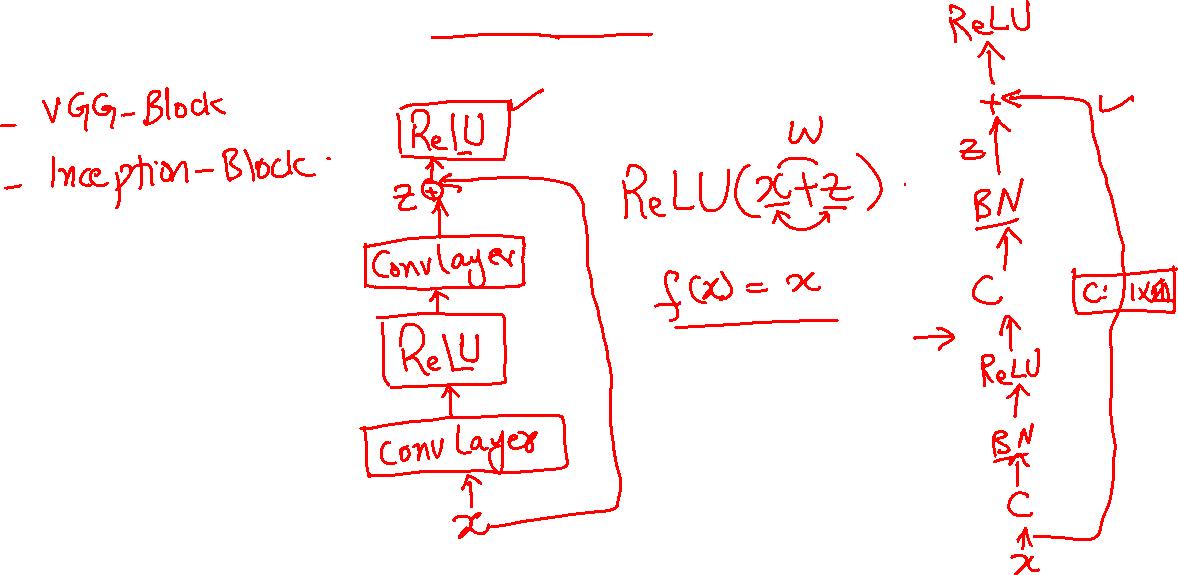 - VGG-Block
- Inception-Block.
ReLU
z +
ConvLayer
ReLU
ConvLayer
x
W
ReLU(x+z).
f(x) = x
ReLU
+
z
BN
C
C: 1x1
ReLU
BN
C
x